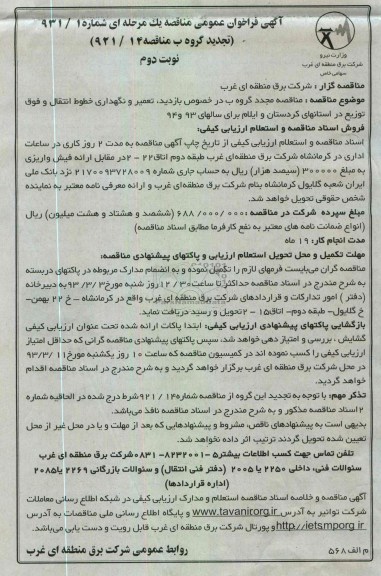 آگهی فراخوان عمومی مناقصه یك مرحله ای شماره ۹۳۱/۱
(تجدید گروه ب مناقصه ۹۲۱/۱۴)
نوبت دوم
وزارت نیرو
شرکت برق منطقه ای غرب
سهامی خاص
مناقصه گزار : شرکت برق منطقه ای غرب
موضوع مناقصه : مناقصه مجدد گروه ب در خصوص بازدید، تعمیر و نگهداری خطوط انتقال و فوق
توزیع در استانهای کردستان و ایلام برای سالهای ۹۳ و ۹۴
فروش اسناد مناقصه و استعلام ارزیابی کیفی:
اسناد مناقصه و استعلام ارزیابی کیفی از تاریخ چاپ آگهی مناقصه به مدت ۲ روز کاری در ساعات
اداری در کرمانشاه شرکت برق منطقه‌ای غرب طبقه دوم اتاق ۲۲ - ۲ در مقابل ارائه فیش واریزی
به مبلغ ۳۰۰۰۰۰ (سیصد هزار) ریال به حساب جاری شماره ۲۱۷۰۰۹۳۷۲۸۰۰۹ نزد بانک ملی
ایران شعبه گلایول کرمانشاه بنام شرکت برق منطقه‌ای غرب و ارائه معرفی نامه معتبر به نماینده
شخص حقوقی تحویل خواهد شد.
مبلغ سپرده شرکت در مناقصه: ۶۸۸/۰۰۰/۰۰۰ (ششصد و هشتاد و هشت میلیون) ریال
(انواع ضمانت نامه های معتبر به نفع کارفرما مطابق اسناد مناقصه)
مدت انجام کار: ۱۹ ماه
مهلت تکمیل و محل تحویل استعلام ارزیابی و پاکتهای پیشنهادی مناقصه:
مناقصه گران می‌بایست فرمهای لازم را تکمیل نموده و به انضمام مدارک مربوطه در پاکتهای دربسته
به شرح مندرج در اسناد مناقصه حداکثر تا ساعت ۱۲/۳۰ روز شنبه مورخ ۹۳/۳/۳ به دبیرخانه
(دفتر) امور تدارکات و قراردادهای شرکت برق منطقه ای غرب واقع در کرمانشاه - خ ۲۲ بهمن-
خ گلایول- طبقه دوم- اتاق ۱۵ - ۲ تحویل و رسید دریافت نماید.
بازگشایی پاکتهای پیشنهادی ارزیابی کیفی: ابتدا پاکات ارائه شده تحت عنوان ارزیابی کیفی
گشایش ، بررسی و امتیاز دهی خواهد شد، سپس پاکتهای پیشنهادی مناقصه گرانی که حداقل امتیاز
ارزیابی کیفی را کسب نموده اند در کمیسیون مناقصه که ساعت ۱۰ روز یکشنبه مورخ ۹۳/۳/۱۱
در محل شرکت برق منطقه ای غرب برگزار خواهد گردید و به شرح مندرج در اسناد مناقصه اقدام
خواهد گردید.
تذکر مهم: با توجه به تجدید این گروه از مناقصه شماره ۹۲۱/۱۴ شرط درج شده در الحاقیه شماره
۲ اسناد مناقصه مذکور و به شرح مندرج در اسناد مناقصه نافذ می‌باشد.
بدیهی است به پیشنهادهای ناقص، مشروط و پیشنهادهایی که بعد از مهلت و یا در محل غیر از محل
تعیین شده تحویل گردند ترتیب اثر داده نخواهد شد.
تلفن تماس جهت کسب اطلاعات بیشتر: ۵-۸۲۳۲۰۰۱-۰۸۳۱ شرکت برق منطقه ای غرب
سئوالات فنی، داخلی ۲۲۵۰ یا ۲۰۰۵ (دفتر فنی انتقال) و سئوالات بازرگانی ۲۲۶۹ یا ۲۰۸۵
(اداره قراردادها)
آگهی مناقصه و خلاصه اسناد مناقصه استعلام و مدارک ارزیابی کیفی در شبکه اطلاع رسانی معاملات
شرکت توانیر به آدرس www.tavanirorg.ir و پایگاه اطلاع رسانی ملی مناقصات به آدرس
http://ietsmporg.ir و پورتال شرکت برق منطقه ای غرب قابل رویت و دست یابی می‌باشد.
م الف ۵۶۸
روابط عمومی شرکت برق منطقه ای غرب